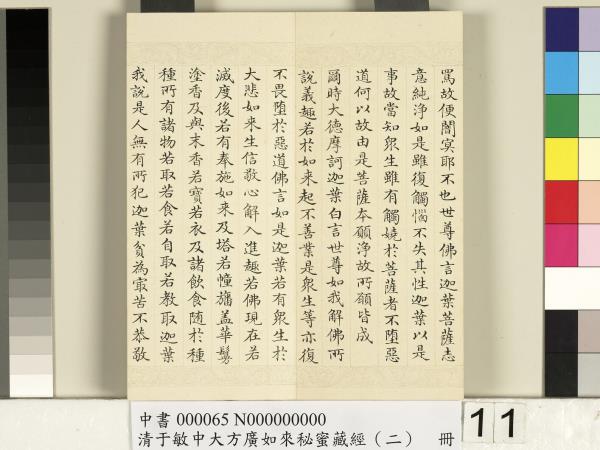 罵故便闇冥耶不也世尊佛言迦葉菩薩志
意純淨如是雖復觸惱不失其性迦葉以是
事故當知眾生雖有觸嬈於菩薩者不墮惡
道何以故由是菩薩本願淨故所願皆成
爾時大德摩訶迦葉白言世尊如我解佛所
說義趣若於如來起不善業是眾生等亦復
不畏墮於惡道佛言如是迦葉若有眾生於
大悲如來生信敬心解入進趣若佛現在若
滅度後若有奉施如來及塔若幢旛蓋華鬘
塗香及與末香若寶若衣及諸飲食隨於種
種所有諸物若取若食若自取若教取迦葉
我說是人無有所犯迦葉貧為最苦不恭敬
中書 000065 N000000000
清于敏中大方廣如來秘蜜藏經（二） 冊
11